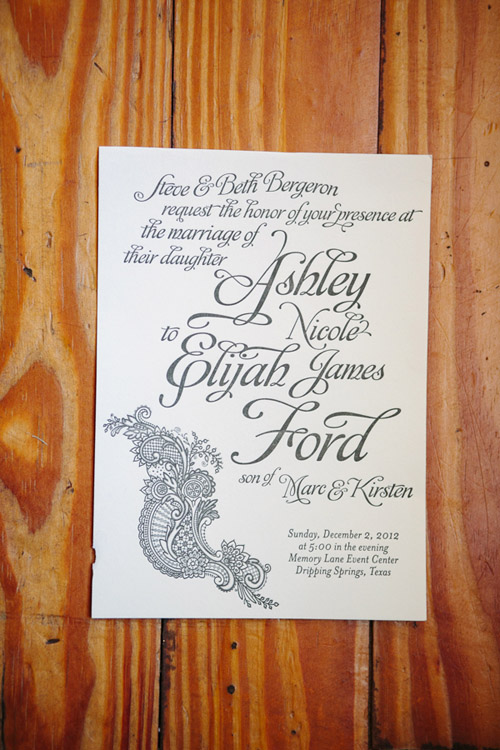 Steve & Beth Bergeron
request the honor of your presence at
the marriage of
their daughter
Ashley
Nicole
to
Elijah James
Ford
son of Marc & Kirsten
Sunday, December 2, 2012
at 5:00 in the evening
Memory Lane Event Center
Dripping Springs, Texas